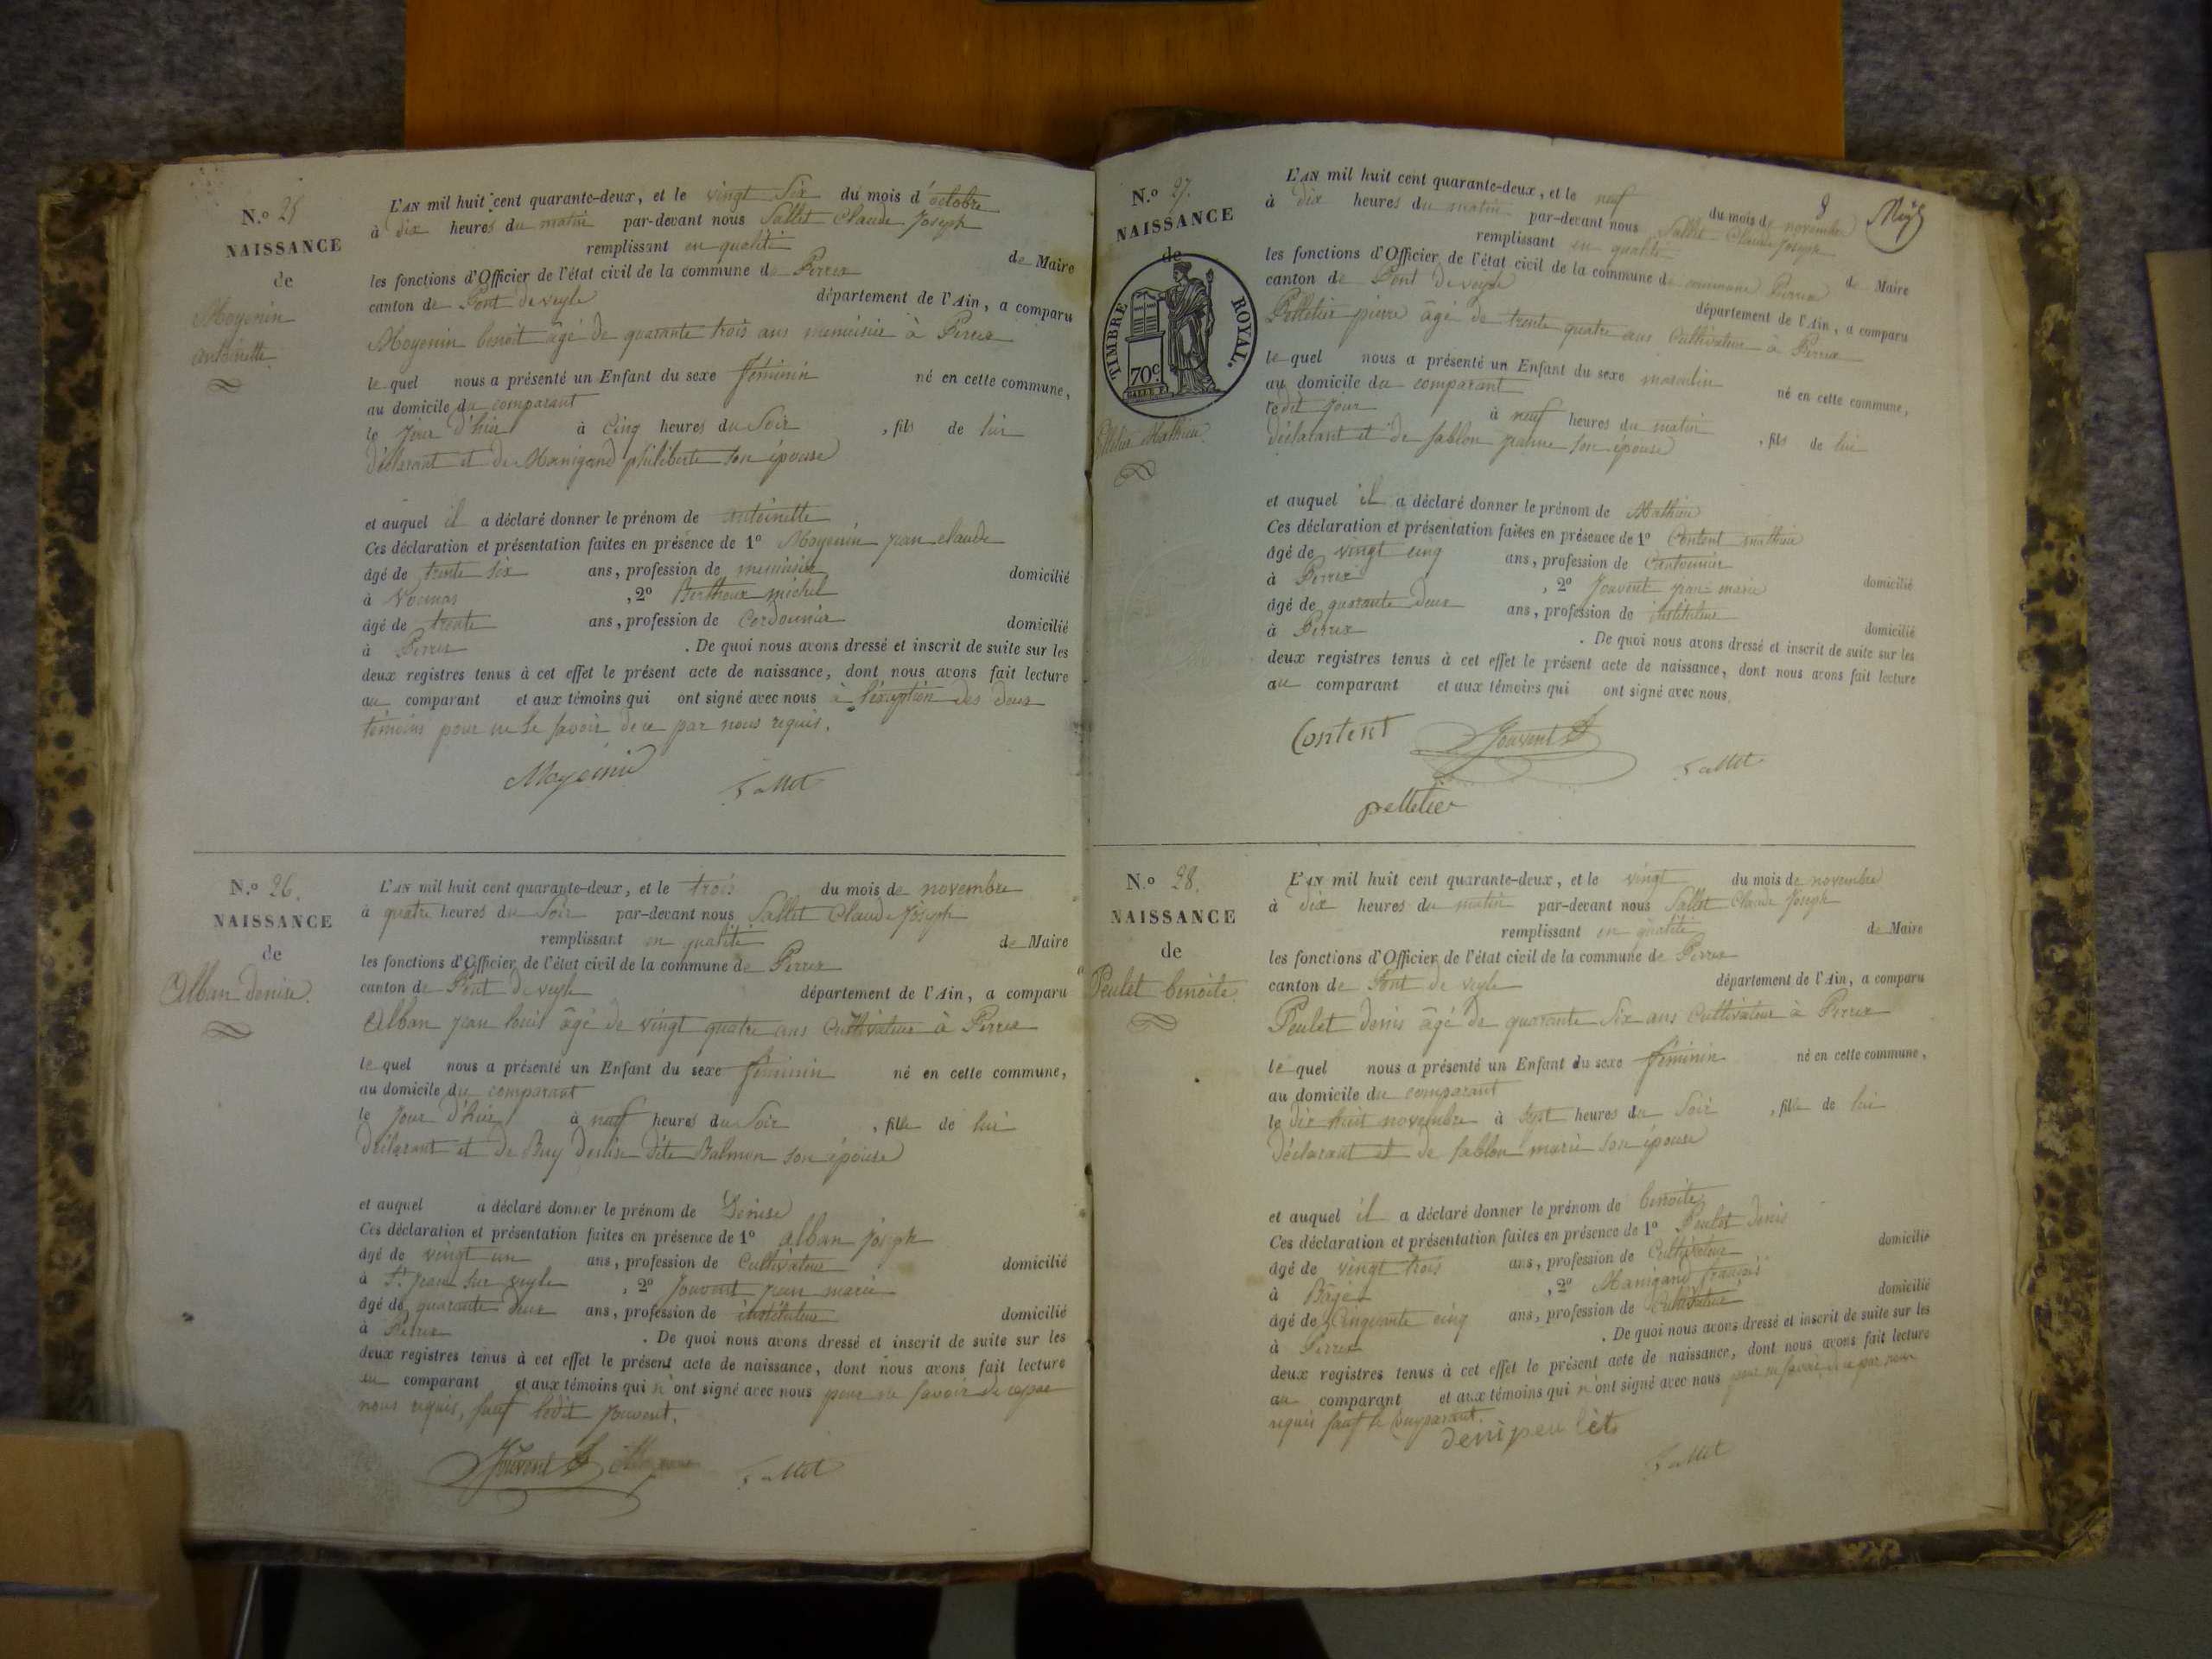 N.o 25
NAISSANCE
de
Moyenin
antoinette
L'AN mil huit cent quarante-deux, et le vingt Six du mois d'octobre
à dix heures du matin par-devant nous Sallet Claude Joseph
remplissant en qualité de Maire
les fonctions d'Officier de l'état civil de la commune de Perrex
canton de Pont de veyle département de l'Ain, a comparu
Moyenin benoit âgé de quarante trois ans menuisier à Perrex
le quel nous a présenté un Enfant du sexe féminin né en cette commune,
au domicile du comparant
le jour d'hier à Cinq heures du Soir , fils de lui
déclarant et de Manigand philiberte son épouse
et auquel il a déclaré donner le prénom de antoinette
Ces déclaration et présentation faites en présence de 1o Moyenin jean claude
âgé de trente six ans, profession de menuisier domicilié
à Vonnas , 2o Berthoux michel
âgé de trente ans, profession de Cordonnier domicilié
à Perrex . De quoi nous avons dressé et inscrit de suite sur les
deux registres tenus à cet effet le présent acte de naissance, dont nous avons fait lecture
au comparant et aux témoins qui ont signé avec nous à l'éxception des deux
témoins pour ne le savoir de ce par nous requis.
Moyenin Sallet
N.o 26.
NAISSANCE
de
Alban denise.
L'AN mil huit cent quarante-deux, et le trois du mois de novembre
à quatre heures du Soir par-devant nous Sallet Claude Joseph
remplissant en qualité de Maire
les fonctions d'Officier de l'état civil de la commune de Perrex
canton de Pont de veyle département de l'Ain, a comparu
Alban jean louis âgé de vingt quatre ans Cultivateur à Perrex
le quel nous a présenté un Enfant du sexe féminin né en cette commune,
au domicile du comparant
le jour d'hier à neuf heures du Soir , fille de lui
déclarant et de Buy Denise dite Balmon son épouse
et auquel a déclaré donner le prénom de Denise
Ces déclaration et présentation faites en présence de 1o alban joseph
âgé de vingt un ans, profession de Cultivateur domicilié
à St jean sur veyle , 2o Jouvent jean marie
âgé de quarante deux ans, profession de instituteur domicilié
à Perrex . De quoi nous avons dressé et inscrit de suite sur les
deux registres tenus à cet effet le présent acte de naissance, dont nous avons fait lecture
au comparant et aux témoins qui n'ont signé avec nous pour ne savoir de ce par
nous requis, sauf ledit jouvent.
Jouvent Sallet
N.o 27.
NAISSANCE
de
TIMBRE ROYAL.
70c.
Pelletier Mathieu.
8
L'AN mil huit cent quarante-deux, et le neuf du mois de novembre
à dix heures du matin par-devant nous Sallet Claude Joseph
remplissant en qualité de Maire
les fonctions d'Officier de l'état civil de la commune de commune Perrex
canton de Pont de veyle département de l'Ain, a comparu
Pelletier pierre âgé de trente quatre ans Cultivateur à Perrex
le quel nous a présenté un Enfant du sexe masculin né en cette commune,
au domicile du comparant
le dit jour à neuf heures du matin , fils de lui
déclarant et de sablon jeanne son épouse
et auquel il a déclaré donner le prénom de Mathieu
Ces déclaration et présentation faites en présence de 1o Content mathieu
âgé de vingt cinq ans, profession de Cantonnier domicilié
à Perrex , 2o Jouvent jean marie
âgé de quarante deux ans, profession de instituteur domicilié
à Perrex . De quoi nous avons dressé et inscrit de suite sur les
deux registres tenus à cet effet le présent acte de naissance, dont nous avons fait lecture
au comparant et aux témoins qui ont signé avec nous.
Content Jouvent Sallet
pelletier
N.o 28.
NAISSANCE
de
Peulet benoite.
L'AN mil huit cent quarante-deux, et le vingt du mois de novembre
à dix heures du matin par-devant nous Sallet Claude Joseph
remplissant en qualité de Maire
les fonctions d'Officier de l'état civil de la commune de Perrex
canton de Pont de veyle département de l'Ain, a comparu
Peulet denis âgé de quarante Six ans Cultivateur à Perrex
le quel nous a présenté un Enfant du sexe féminin né en cette commune,
au domicile du comparant
le dix huit novembre à sept heures du Soir , fille de lui
déclarant et de sablon marie son épouse
et auquel il a déclaré donner le prénom de benoite
Ces déclaration et présentation faites en présence de 1o Peulet denis
âgé de vingt trois ans, profession de Cultivateur domicilié
à Bâgé , 2o Manigand françois
âgé de Cinquante cinq ans, profession de Cultivateur domicilié
à Perrex . De quoi nous avons dressé et inscrit de suite sur les
deux registres tenus à cet effet le présent acte de naissance, dont nous avons fait lecture
au comparant et aux témoins qui n'ont signé avec nous pour ne savoir de ce par nous
requis sauf le Comparant.
deni peu lèt Sallet